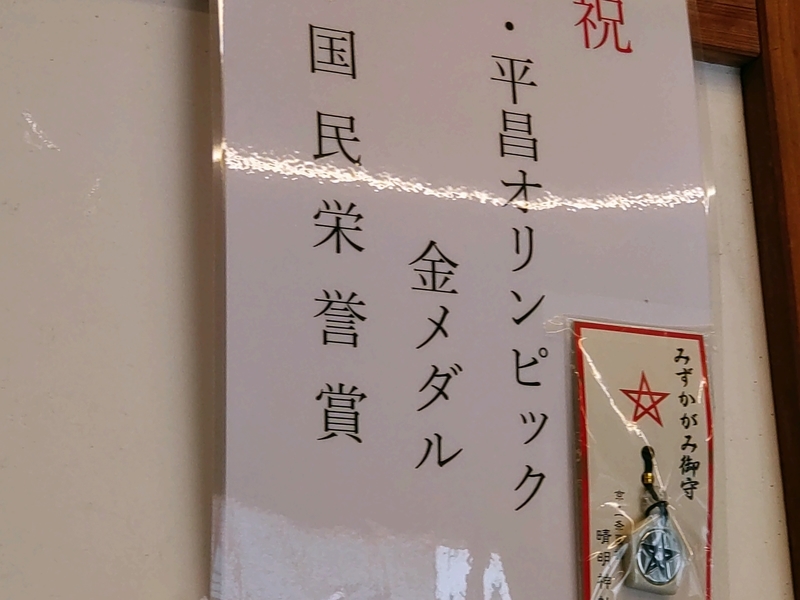 祝
・平昌オリンピック
金メダル
国民栄誉賞
みずかがみ御守
晴明神社